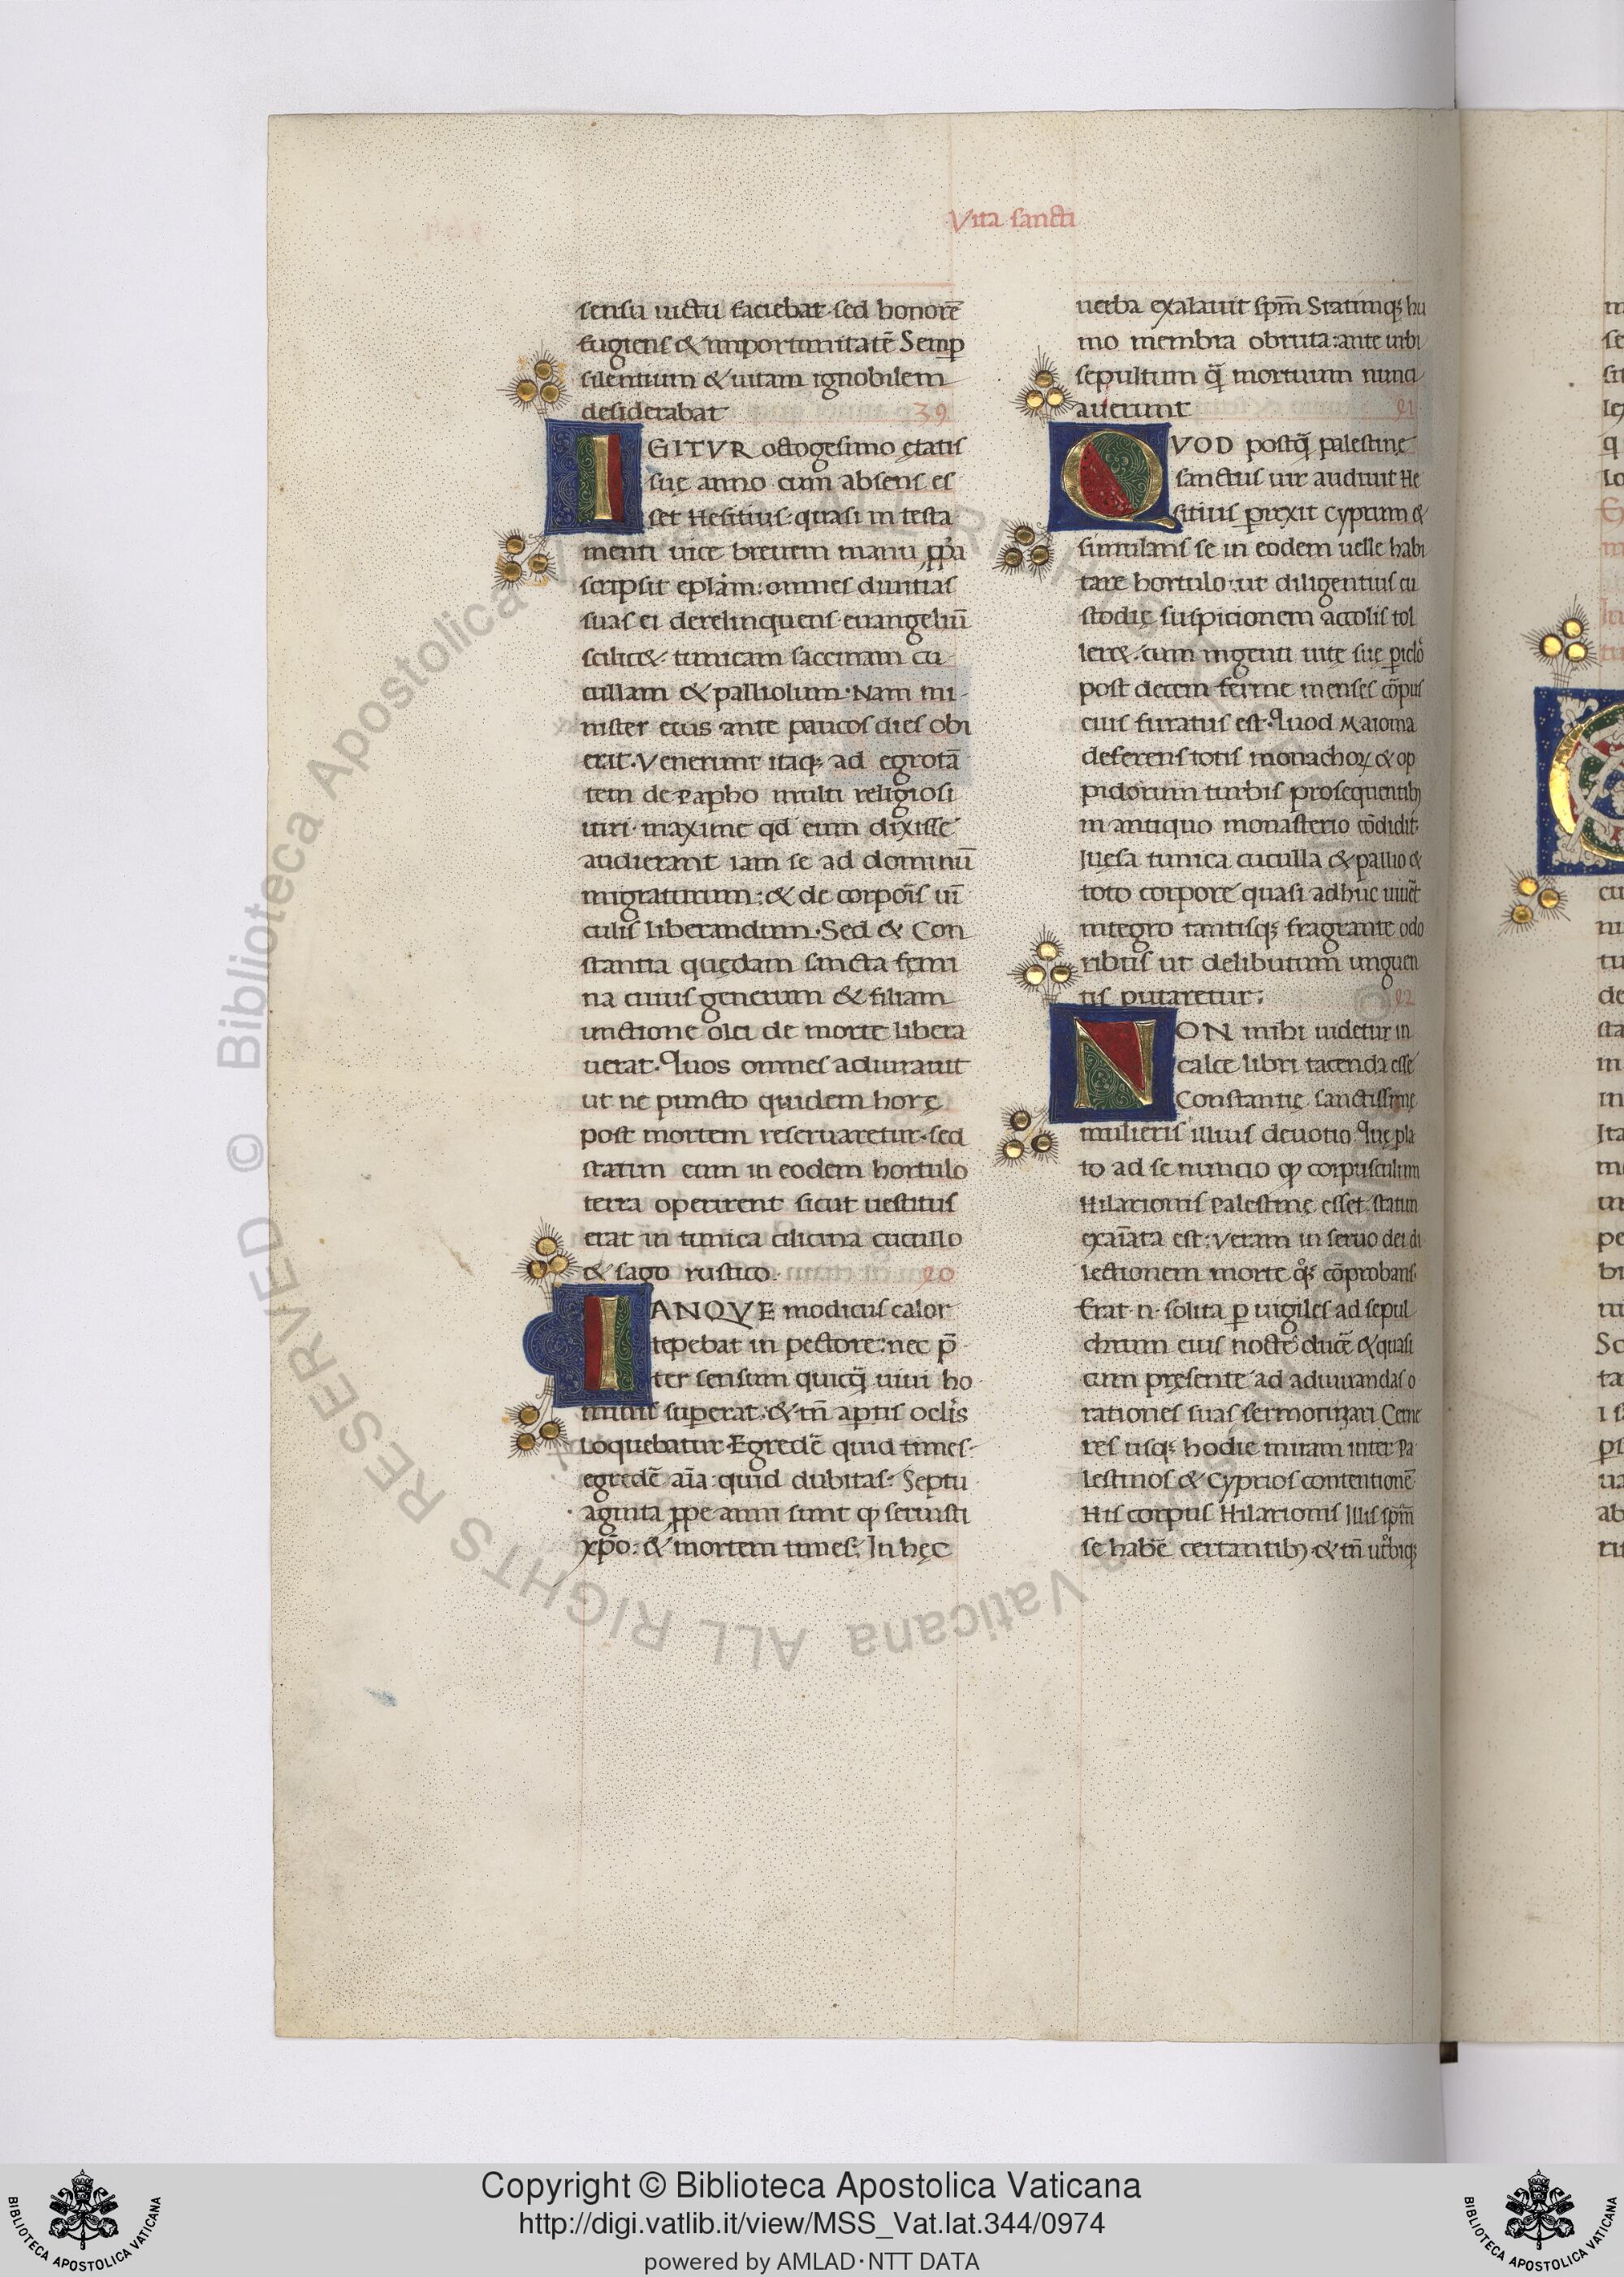 Vita sancti
sensu uictu faciebat·sed honorē
fugiens & importunitatē Semꝑ
silentium & uitam ignobilem
desiderabat 39
IGITVR octogesimo ętatis
suę anno cum absens es
set Hesitius·quasi in testa
menti uice breuem manu ꝓpa
scripsit eplam: omnes diuitias
suas ei derelinquens·euangeliū
scilicet· tunicam saccinam cu
cullam & palliolum·Nam mi-
nister eius ante paucos dies obi
erat·Venerunt itaq; ad egrotā
tem de Papho multi religiosi
uiri·maxime qd eum dixisse
audierant iam se ad dominū
migraturum: & de corporis uī
culis liberandum·Sed & Con
stantia quędam sancta femi
na cuius generum & filiam
unctione olei de morte libera
uerat·Quos omnes adiurauit
ut ne puncto quidem horę
post mortem reseruaretur·sed
statim eum in eodem hortulo
terra operirent sicut uestitus
erat in tunica cilicina cucullo
& sago rustico· 20
IANQVE modicus calor
tepebat in pectore: nec p̄
ter sensum quicq̄ uiui ho
minis superat·& tn̄ aptis oclis
loquebatur·Egredē quid times·
egredē aīa quid dubitas· Septu
aginta ꝓpe anni sunt ꝙ seruisti
xp̄o: & mortem times; In hęc
uerba exalauit spm̄ Statimq; hu
mo membra obruta: ante urbi
sepultum q̄ mortuum nunci
auerunt 21
QVOD postq̄ palestinę
sanctus uir audiuit He
sitius prexit Cyprum &
simulans se in eodem uelle habi
tare hortulo·ut diligentius cu
stodię suspicionem accolis tol
leret· cum ingenti uitę suę ꝑiclo
post decem ferme menses cōpus
eius furatus est·Quod Maioma
deferens totis monachoꝝ & op
pidorum turbis prosequentib;
in antiquo monasterio cōdidit·
Illęsa tunica cuculla & pallio &
toto corpore quasi adhuc uiuēt
integro tantisq; fragrante odo
ribus ut delibutum unguen
tis putaretur; 22
NON mihi uidetur in
calce libri tacenda esse
Constantię sanctissimę
mulieris illius deuotio·Quę pla
to ad se nuncio ꝙ corpusculum
Hilarionis Palestinę esset·statim
exaīata est: ueram in seruo dei di
lectionem morte q̊; cōprobans·
Erat·n·solita ꝑ uigiles ad sepul
chrum eius noctes ducē & quasi
cum pręsente ad adiuuandas o
rationes suas sermotinzari Cerne
res usq; hodie miram inter Pa
lestinos & Cyprios contentionē·
His corpus Hilarionis Illis spm̄
se habē certantib; & tn̄ utrbiq;
Copyright © Biblioteca Apostolica Vaticana
http://digi.vatlib.it/view/MSS_Vat.lat.344/0974
powered by AMLAD·NTT DATA
© Biblioteca Apostolica Vaticana ALL RIGHTS RESERVED
BIBLIOTECA APOSTOLICA VATICANA
BIBLIOTECA APOSTOLICA VATICANA